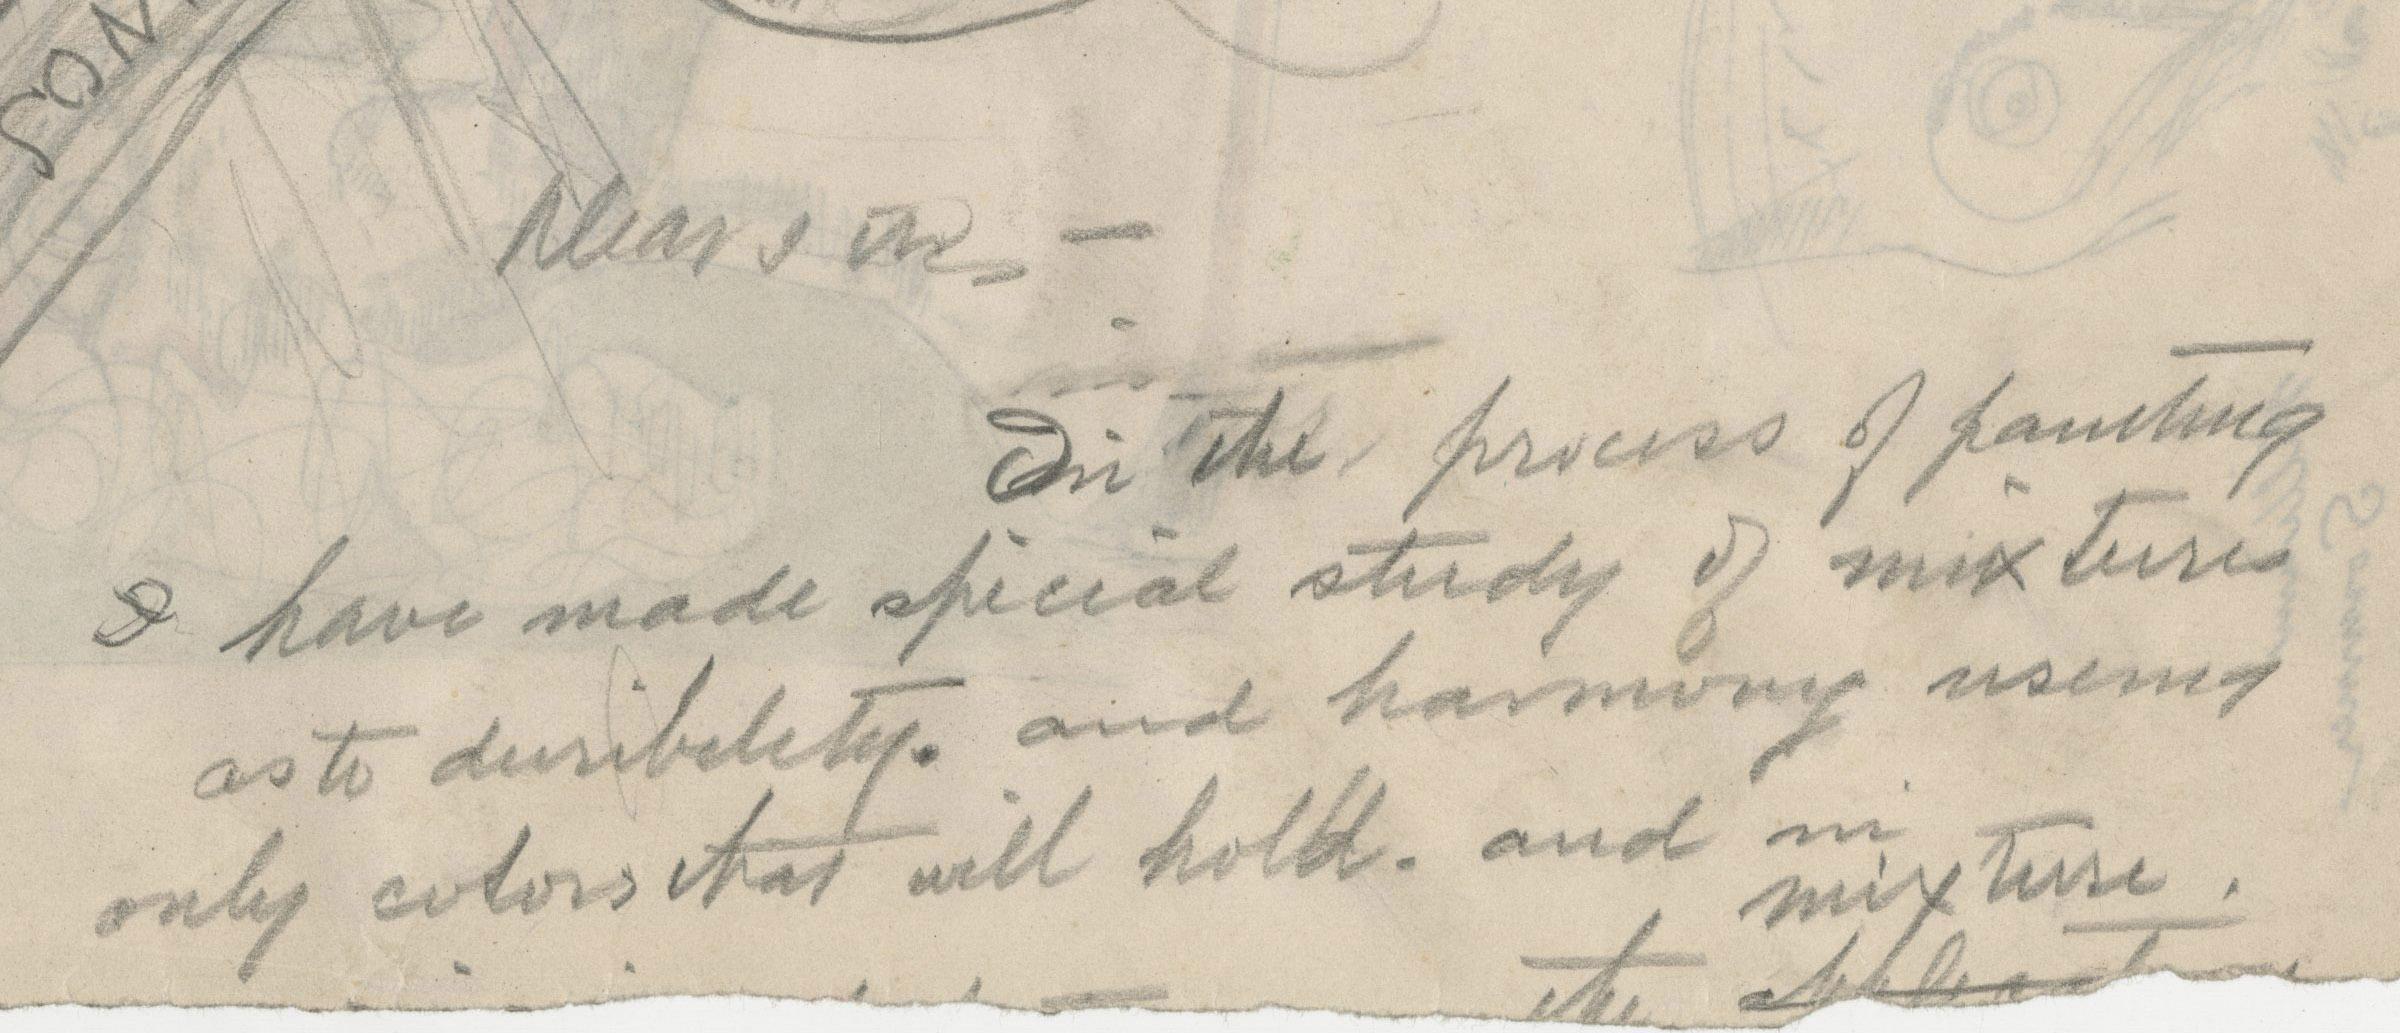 Dear
In the process of painting
I have made special study of mixtures
as to duribility. and harmony useing
only colors that will hold. and in
mixture.
the